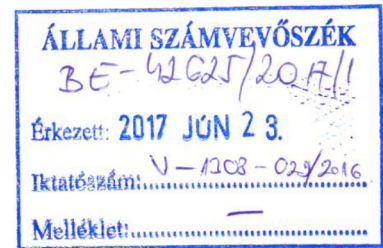 ÁLLAMI SZÁMVEVŐSZÉK
BE-42625/2017/1
Érkezett: 2017 JÚN 23.
Iktatószám: V-1308-029/2016
Melléklet: —